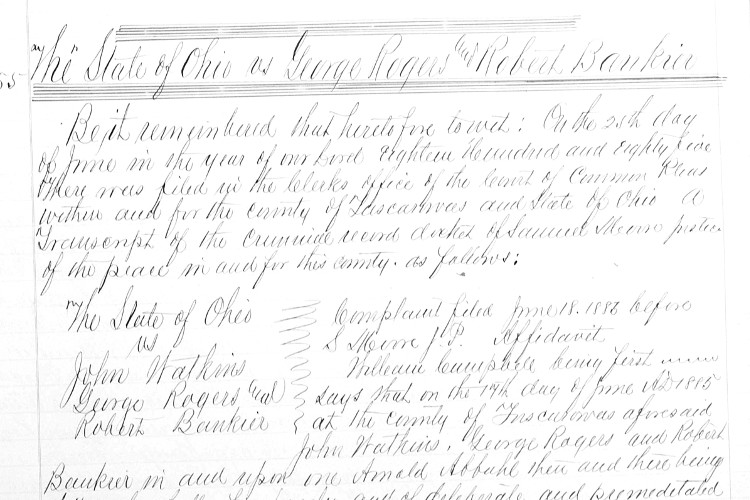 The State of Ohio vs George Rogers and Robert Bankier
55
Be it remembered that heretofore to wit: On the 25th day
of June in the year of our Lord Eighteen Hundred and Eighty five
there was filed in the Clerks office of the Court of Common Pleas
within and for the county of Tuscarawas and State of Ohio a
Transcript of the Criminal record docket of Samuel Moore Justice
of the peace in and for this county. as follows:
The State of Ohio
vs
John Watkins
George Rogers and
Robert Bankier
Complaint filed June 18. 1885 before
S Moore J.P. Affidavit
William being first
says that on the 17th day of June AD 1885
at the county of Tuscarawas aforesaid
John Watkins, George Rogers and Robert
Bankier in and upon one Arnold Abbuhl then and there being
and of deliberate and premeditated